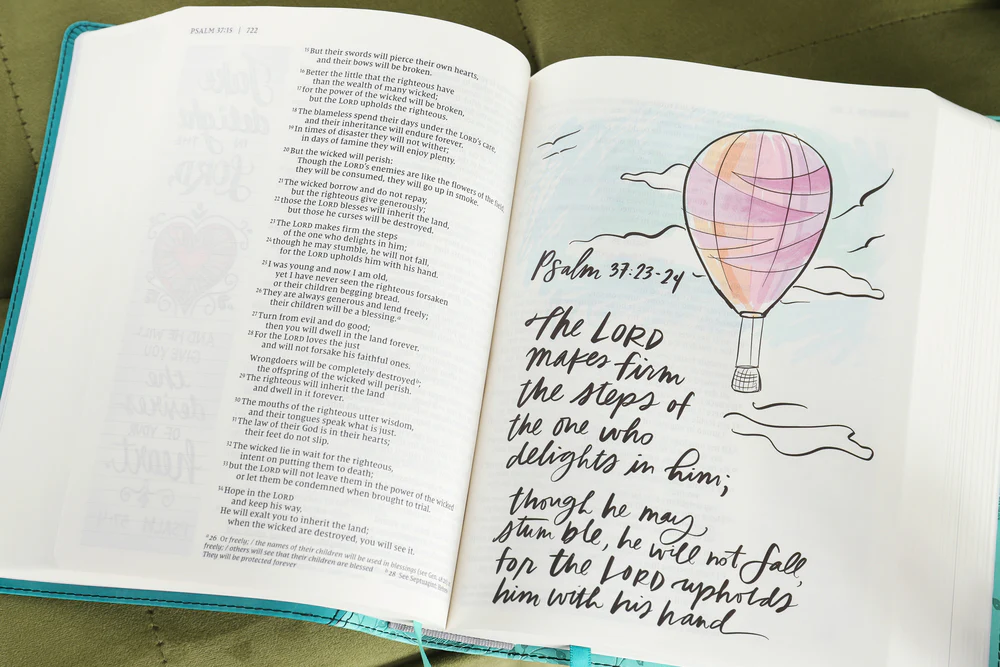 PSALM 37:15 | 722
15But their swords will pierce their own hearts,
and their bows will be broken.
16Better the little that the righteous have
than the wealth of many wicked;
17for the power of the wicked will be broken,
but the LORD upholds the righteous.
18The blameless spend their days under the LORD's care,
and their inheritance will endure forever.
19In times of disaster they will not wither;
in days of famine they will enjoy plenty.
20But the wicked will perish:
Though the LORD's enemies are like the flowers of the field,
they will be consumed, they will go up in smoke.
21The wicked borrow and do not repay,
but the righteous give generously;
22those the LORD blesses will inherit the land,
but those he curses will be destroyed.
23The LORD makes firm the steps
of the one who delights in him;
24though he may stumble, he will not fall,
for the LORD upholds him with his hand.
25I was young and now I am old,
yet I have never seen the righteous forsaken
or their children begging bread.
26They are always generous and lend freely;
their children will be a blessing.a
27Turn from evil and do good;
then you will dwell in the land forever.
28For the LORD loves the just
and will not forsake his faithful ones.
Wrongdoers will be completely destroyedb;
the offspring of the wicked will perish.
29The righteous will inherit the land
and dwell in it forever.
30The mouths of the righteous utter wisdom,
and their tongues speak what is just.
31The law of their God is in their hearts;
their feet do not slip.
32The wicked lie in wait for the righteous,
intent on putting them to death;
33but the LORD will not leave them in the power of the wicked
or let them be condemned when brought to trial.
34Hope in the LORD
and keep his way.
He will exalt you to inherit the land;
when the wicked are destroyed, you will see it.
a26 Or freely; / the names of their children will be used in blessings (see Gen.
freely; / others will see that their children are blessed b28 See Septuagint;
They will be protected forever
Psalm 37:23-24
The LORD
makes firm
the steps of
the one who
delights in him;
though he may
stumble, he will not fall,
for the LORD upholds
him with his hand